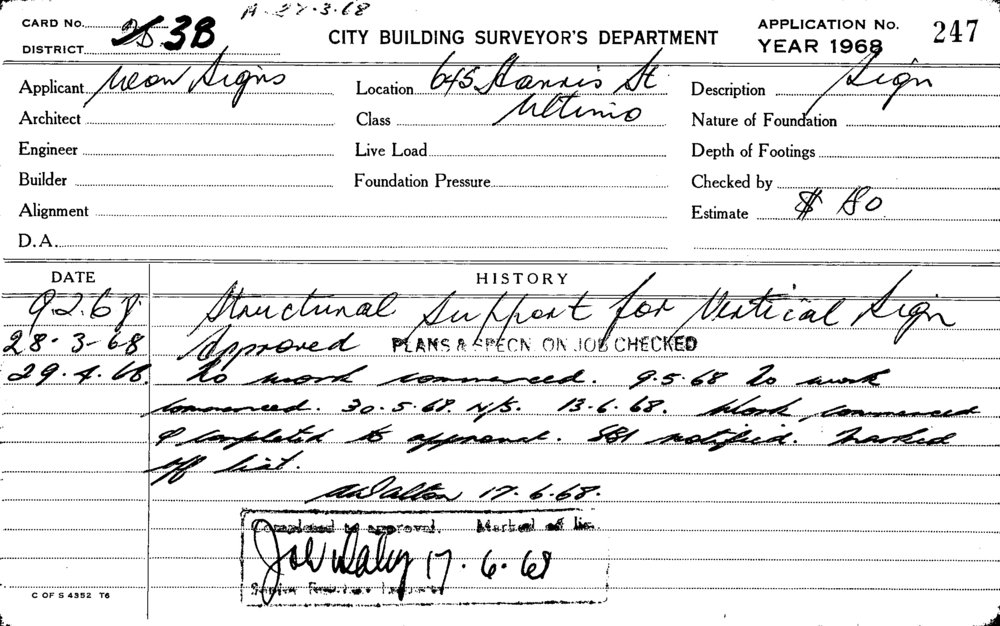 A-27-3-68
CARD No. 3B
DISTRICT
CITY BUILDING SURVEYOR'S DEPARTMENT
APPLICATION No. 247
YEAR 1968
Applicant Neon Signs
Location 645 Harris St
Description Sign
Architect
Class Ultimo
Nature of Foundation
Engineer
Live Load
Depth of Footings
Builder
Foundation Pressure
Checked by
Alignment
Estimate $ 80
D.A.
DATE
HISTORY
9.2.68 Structural Support for Vertical Sign
28-3-68 Approved PLANS & SPECN. ON JOB CHECKED
29.4.68. No work commenced. 9.5.68 No work
commenced. 30.5.68. N/S. 13.6.68. Work commenced
& completed to approval. SBI notified. Marked
off list.
17.6.68.
Completed to approval. Marked off list.
17.6.68
C OF S 4352 T6